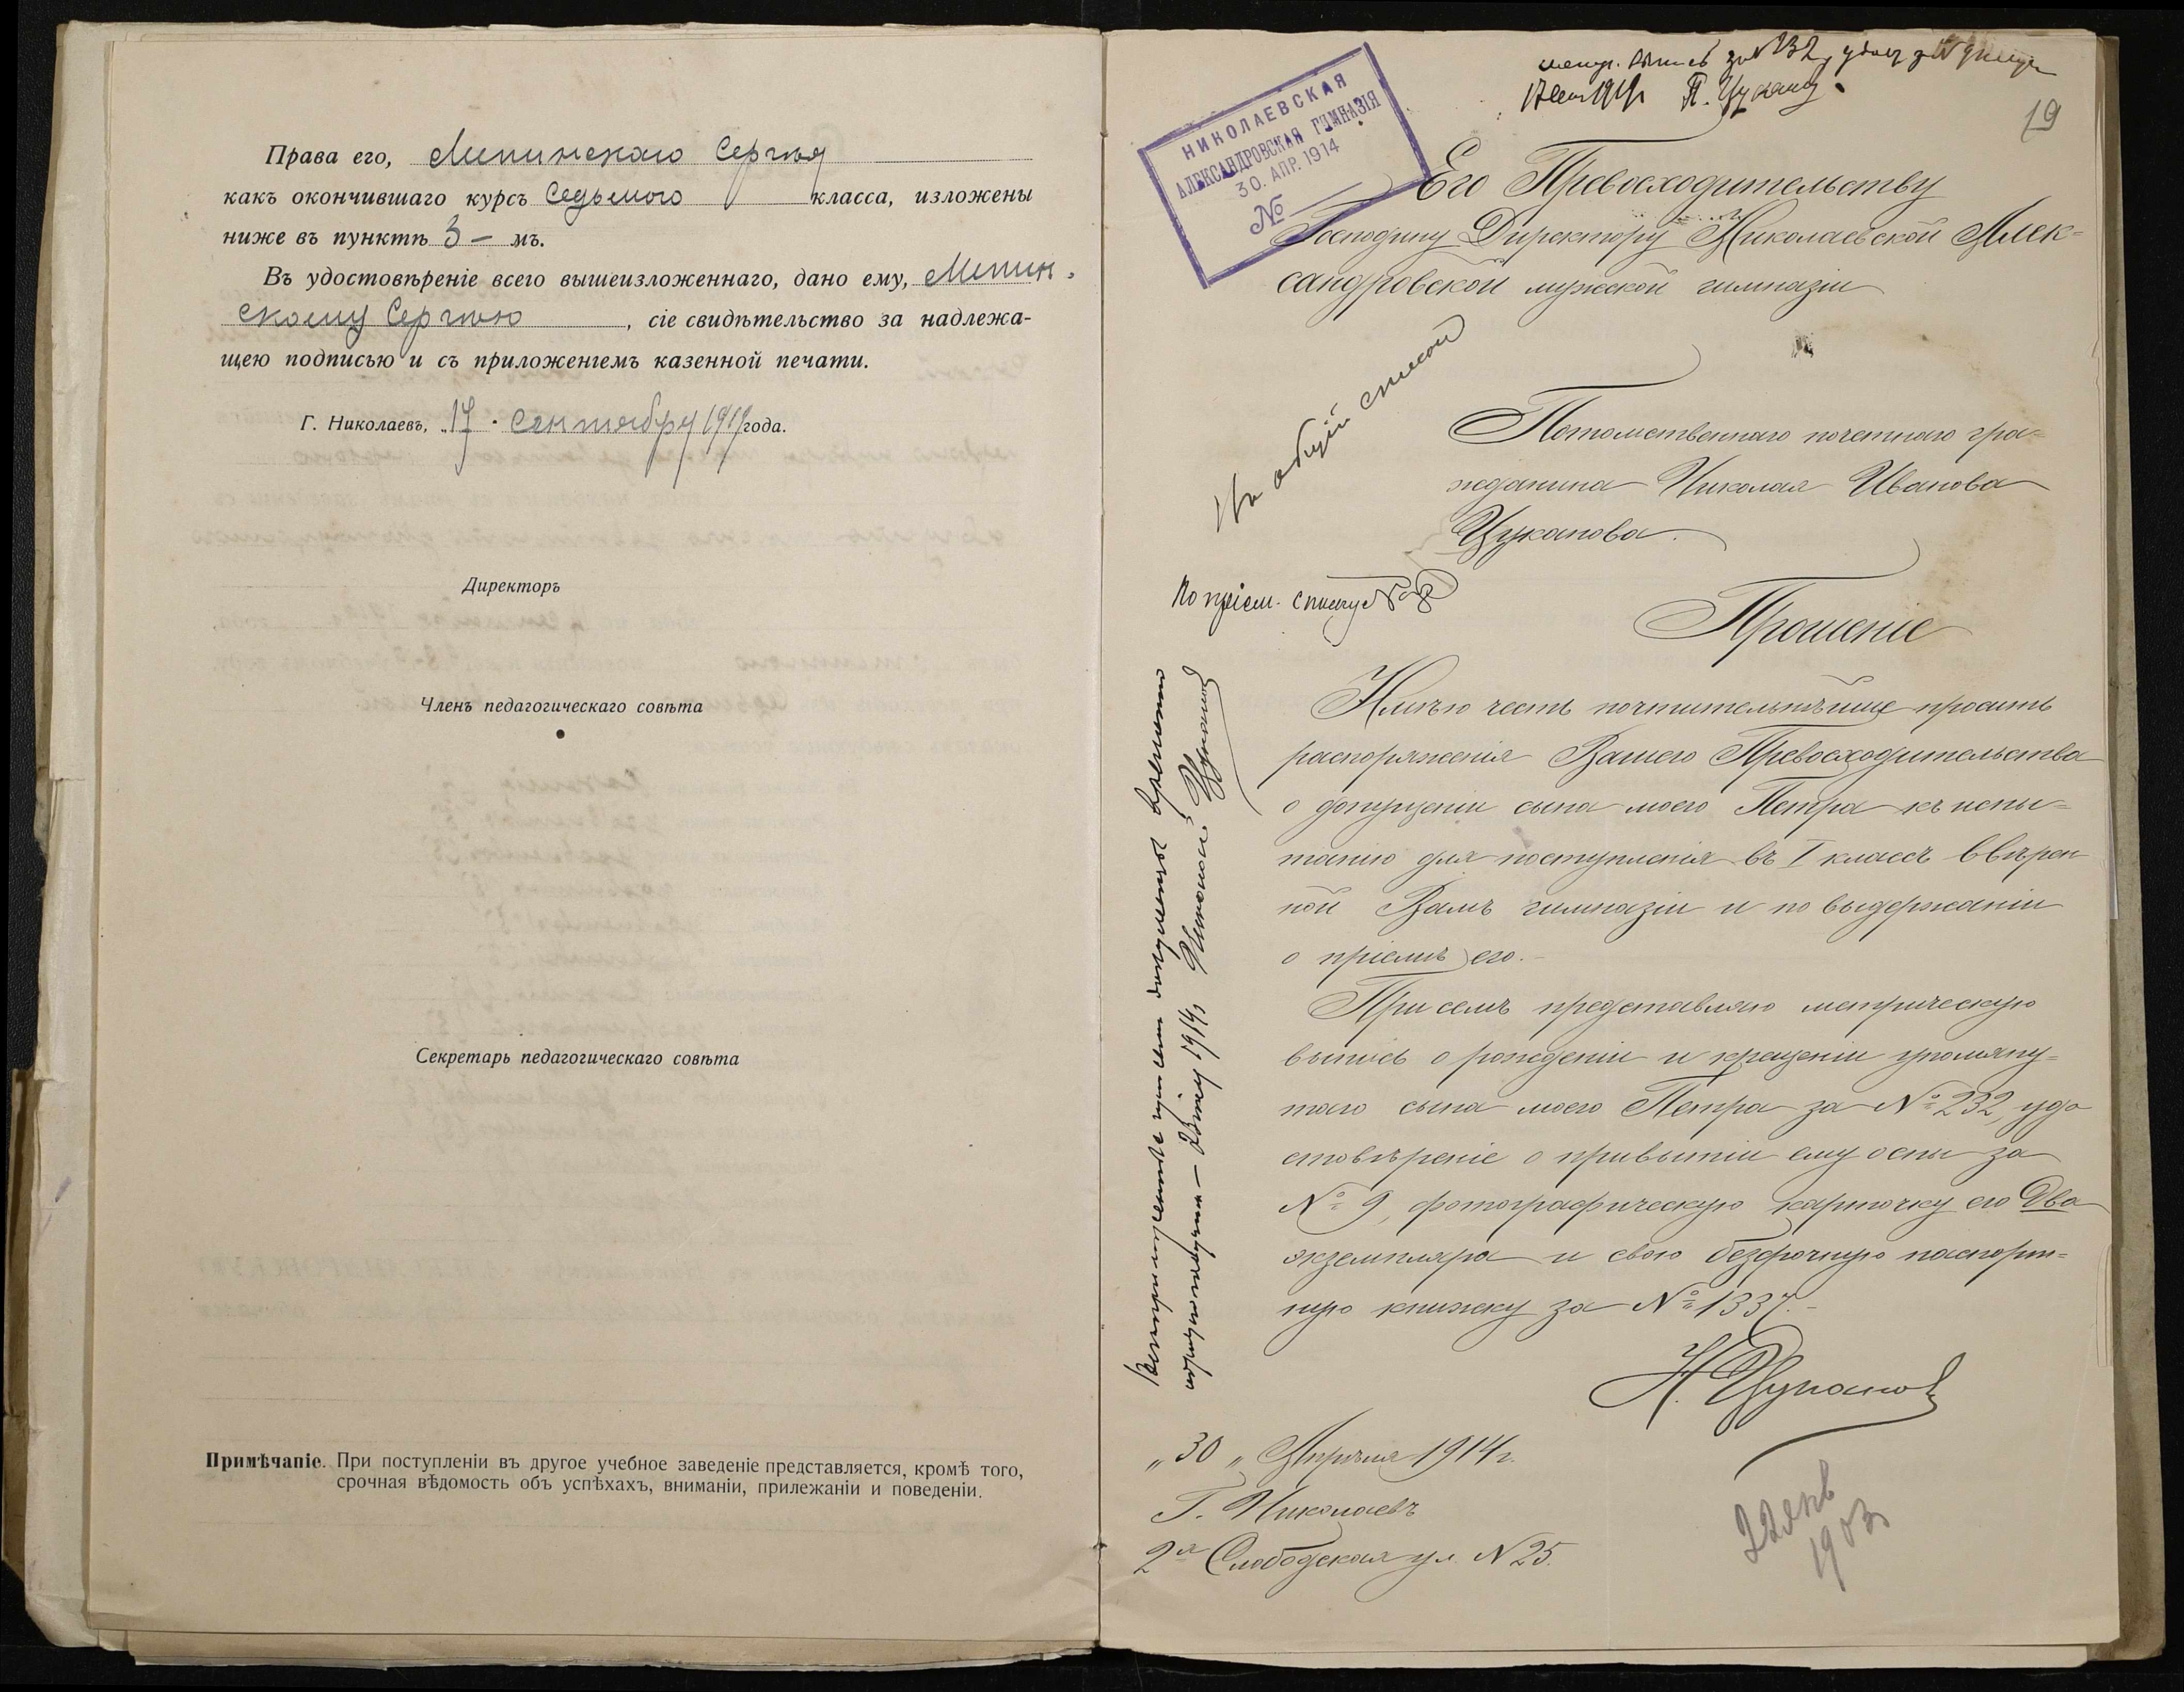 Права его, Мепинскаго Сергѣя
какъ окончившаго курсъ Седьмого класса, изложены
ниже въ пунктѣ 3 – мъ.
Въ удостовѣреніе всего вышеизложеннаго, дано ему, Мепин-
скому Сергѣю, сіе свидѣтельство за надлежа-
щею подписью и съ приложеніемъ казенной печати.
Г. Николаевъ, „17 • сентября 1919 года.
Директоръ
Членъ педагогическаго совѣта
Секретарь педагогическаго совѣта
Примѣчаніе. При поступленіи въ другое учебное заведеніе представляется, кромѣ того,
срочная вѣдомость объ успѣхахъ, вниманіи, прилежаніи и поведеніи.
метр. выпись за № 232, удост за № 9 получ
17 сен 1919 г. П. Цуканов
19
НИКОЛАЕВСКАЯ
АЛЕКСАНДРОВСКАЯ ГИМНАЗІЯ
30. АПР. 1914
№
Его Превосходительству
Господину Директору Николаевской Алек=
сандровской мужской гимназіи
На общій списокъ
Потомственнаго почетнаго гра=
жданина Николая Иванова
Цуканова.
По пріем. списку №
Прошеніе
Имѣю честь почтительнѣйше просить
распоряженія Вашего Превосходительства
о допущеніи сына моего Петра къ испы=
танію для поступленія въ I классъ ввѣрен
ной Вамъ гимназіи и по выдержаніи
о пріемѣ его.–
При семъ представляю метрическую
выпись о рожденіи и крещеніи упомяну=
таго сына моего Петра за № 232, удо
стовѣреніе о привитіи ему оспы за
№ 9, фотографическую карточку его Два
экземпляра и свою безсрочную паспорт=
ную книжку за № 1337.–
Н. Цукановъ
„30„ Апрѣля 1914 г.
Г. Николаевъ
2я Слободская ул. № 25.
22 янв
1903
документов временно
обратно получил – 1914 г. Николай Цуканов